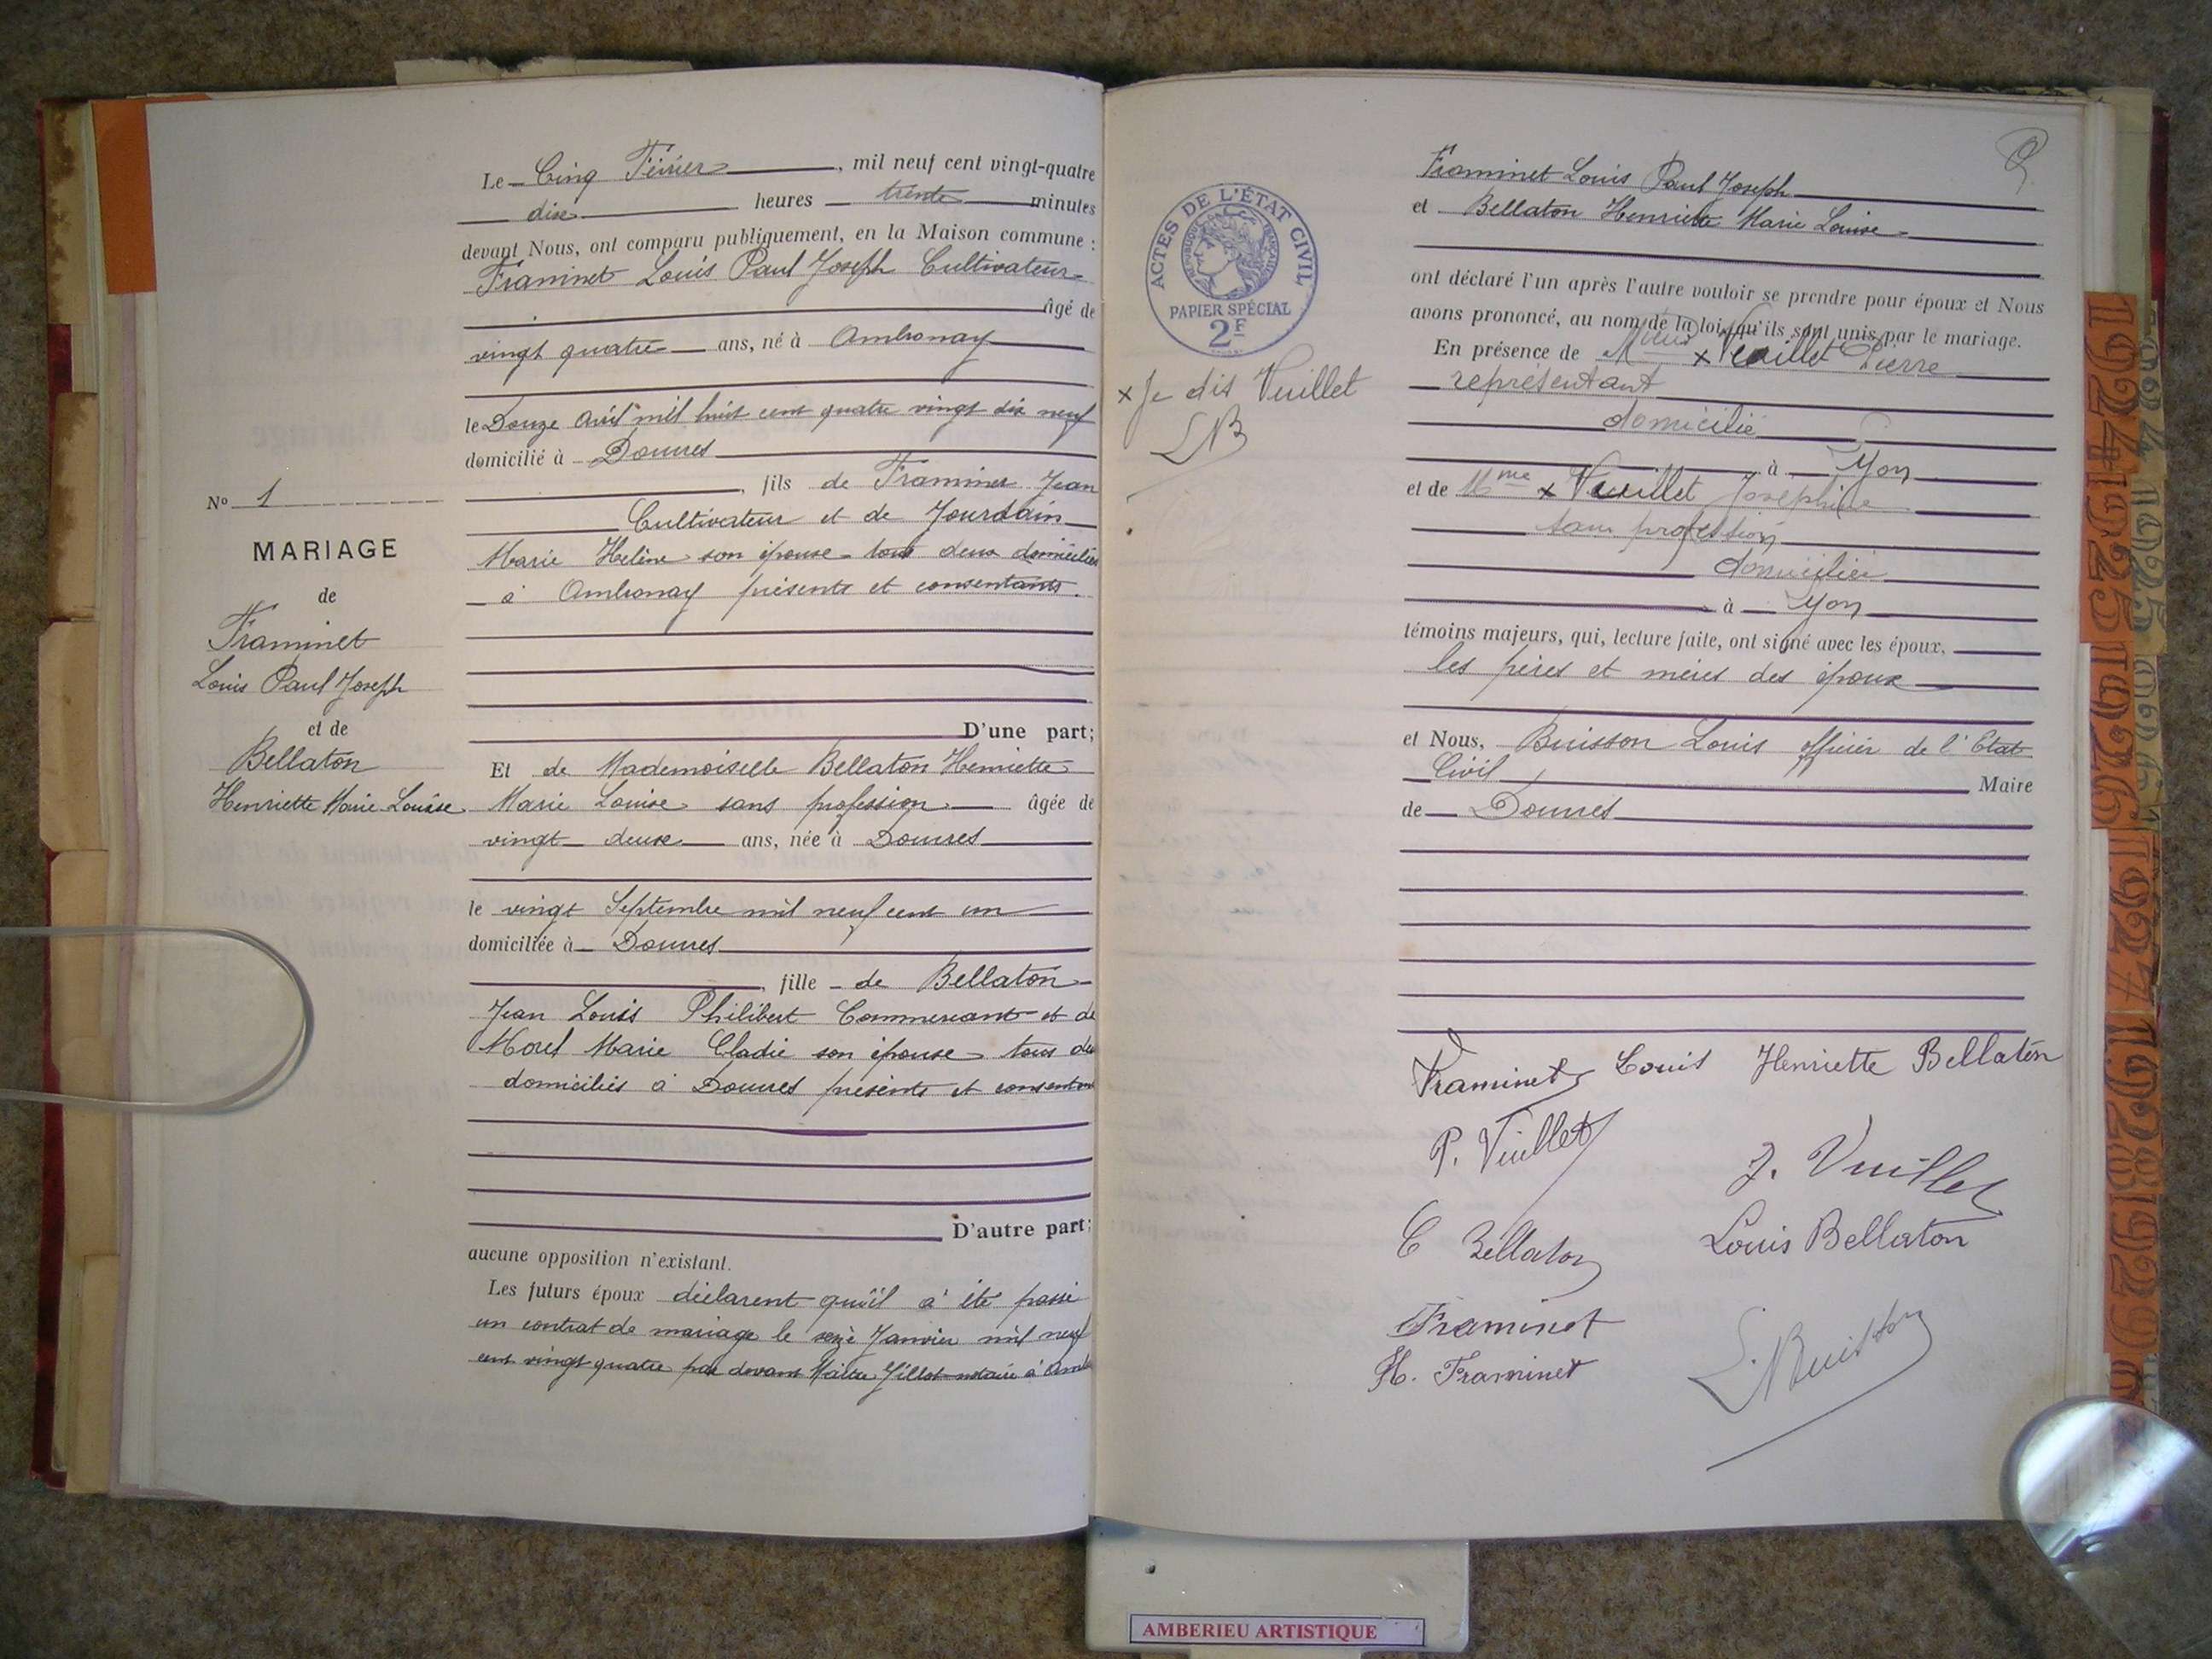 Le Cinq Février, mil neuf cent vingt-quatre
dix heures trente minutes
devant Nous, ont comparu publiquement, en la Maison commune :
Framinet Louis Paul Joseph Cultivateur
âgé de
vingt quatre ans, né à Ambronay
le Douze Avril mil huit cent quatre vingt dix neuf
domicilié à Douvres
, fils de Framinet Jean
Cultivateur et de Jourdain
Marie Hélène son épouse tous deux domiciliés
à Ambronay présents et consentants.
D'une part;
Et de Mademoiselle Bellaton Henriette
Marie Louise sans profession. âgée de
vingt deux ans, née à Douvres
le vingt Septembre mil neuf cent un
domiciliée à Douvres
, fille de Bellaton
Jean Louis Philibert Commercant et de
Morel Marie Cladie son épouse tous de
domiciliés à Douvres présents et consentan
D'autre part;
aucune opposition n'existant.
Les futurs époux déclarent qu'il a été passé
un contrat de mariage le seize Janvier mil neuf
cent vingt quatre par devant Maître Gillot notaire à Amb
N° 1
MARIAGE
de
Framinet
Louis Paul Joseph
et de
Bellaton
Henriette Marie Louise
ACTES DE L'ÉTAT CIVIL
RÉPUBLIQUE FRANÇAISE
PAPIER SPÉCIAL
2F
x Je dis Vuillet
LB
Framinet Louis Paul Joseph
et Bellaton Henriette Marie Louise
ont déclaré l'un après l'autre vouloir se prendre pour époux et Nous
avons prononcé, au nom de la loi, qu'ils sont unis par le mariage.
En présence de x Vuillet Pierre
représentant
domicilié
à Lyon
et de Mme x Vuillet Joséphine
sans profession
domiciliée
à Lyon
témoins majeurs, qui, lecture faite, ont signé avec les époux,
les pères et mères des époux
et Nous, Buisson Louis officier de l'Etat
Civil Maire
de Douvres
Framinet Louis Henriette Bellaton
P. Vuillet
J. Vuillet
C Bellaton Louis Bellaton
Framinet
H. Framinet
L. Buisson
AMBERIEU ARTISTIQUE